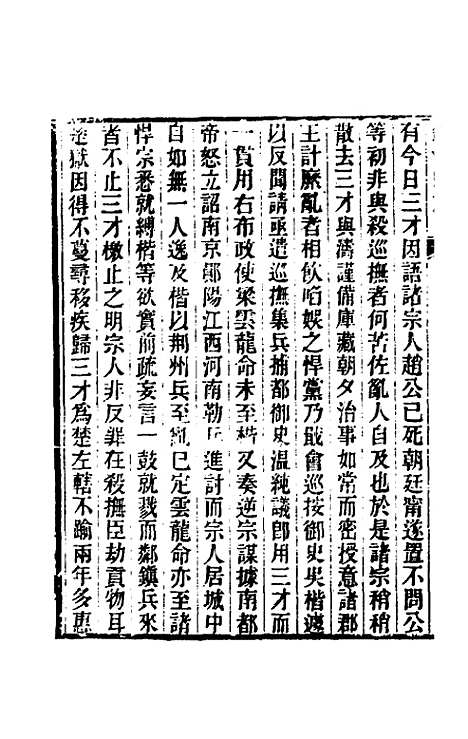 有今日三才因語諸宗人趙公已死朝廷甯遂置不問公
等初非與殺巡撫者何苦佐亂人自及也於是諸宗稍稍
散去三才與濤謹備庫藏朝夕治事如常而密授意諸郡
王計縻亂者相飲啗娛之悍黨乃戢會巡按御史吳楷遽
以反聞請亟遣巡撫集兵捕都御史溫純議即用三才而
一貫用右布政使梁雲龍命未至楷又奏逆宗謀據南都
帝怒立詔南京鄖陽江西河南勒兵進討而宗人居城中
自如無一人逸及楷以荊州兵至亂已定雲龍命亦至諸
悍宗悉就縛楷等欲實前疏妄言一鼓就戮而鄰鎮兵來
者不止三才檄止之明宗人非反罪在殺撫臣劫貢物耳
楚獄因得不蔓尋移疾歸三才為楚左轄不踰兩年多惠